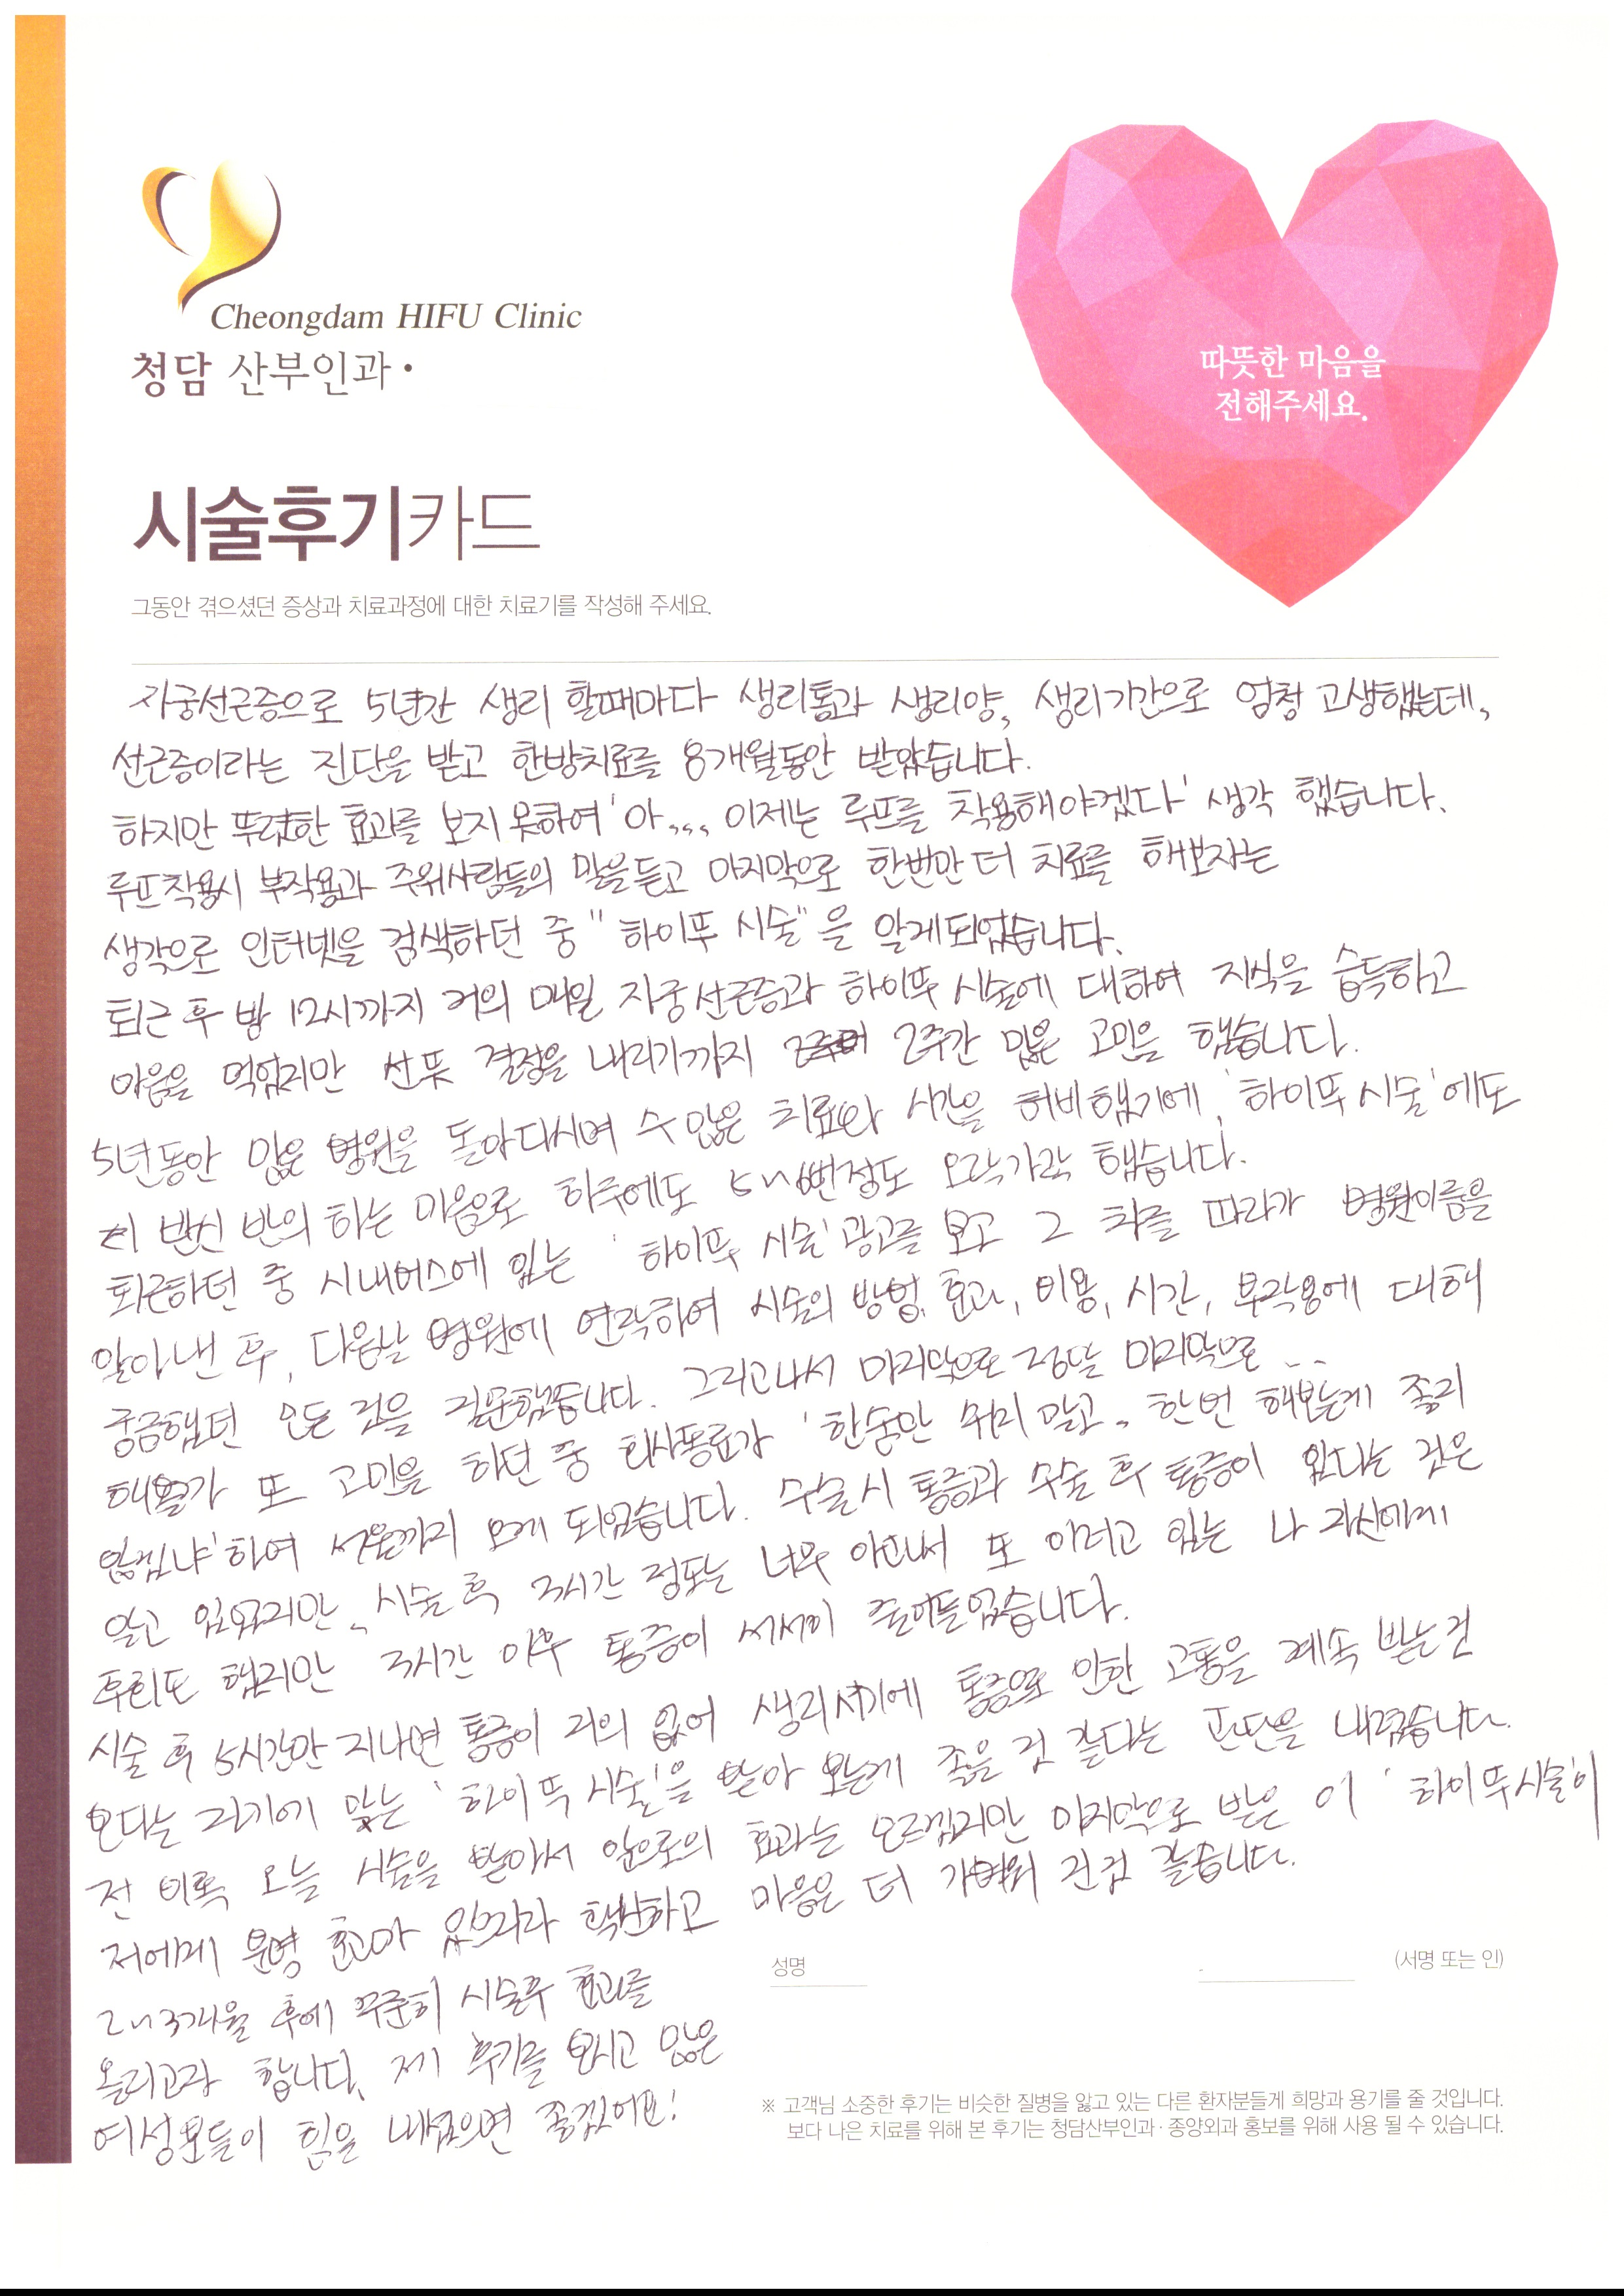 Cheongdam HIFU Clinic
청담 산부인과·
따뜻한 마음을
전해주세요.
시술후기카드
그동안 겪으셨던 증상과 치료과정에 대한 치료기를 작성해 주세요.
자궁선근증으로 5년간 생리 할때마다 생리통과 생리양, 생리기간으로 엄청 고생했는데,
선근증이라는 진단을 받고 한방치료를 8개월동안 받았습니다.
하지만 뚜렷한 효과를 보지 못하여 '아... 이제는 루프를 착용해야겠다' 생각 했습니다.
루프착용시 부작용과 주위사람들의 말을듣고 마지막으로 한번만 더 치료를 해보자는
생각으로 인터넷을 검색하던 중 "하이푸 시술"을 알게되었습니다.
퇴근 후 밤 12시까지 거의 매일 자궁선근증과 하이푸 시술에 대하여 지식을 습득하고
마음을 먹었지만 선뜻 결정을 내리기까지 2주간 많은 고민을 했습니다.
5년동안 많은 병원을 돌아다시며 수많은 치료와 시간을 허비했기에, '하이푸 시술'에도
반신 반의 하는 마음으로 하루에도 5~6번정도 오락가락 했습니다.
퇴근하던 중 시내버스에 있는 '하이푸 시술' 광고를 보고 그 차를 따라가 병원이름을
알아낸 후, 다음날 병원에 연락하여 시술의 방법, 효과, 비용, 시간, 부작용에 대해
궁금했던 모든 것을 질문했습니다. 그리고나서 마지막으로 정말 마지막으로...
해볼까 또 고민을 하던 중 회사동료가 '한숨만 쉬지 말고. 한번 해보는게 좋지
않겠냐'하여 서울까지 오게 되었습니다. 수술시 통증과 수술 후 통증이 있다는 것은
알고 있었지만, 시술 후 3시간 정도는 너무 아파서 또 이러고 있는 나 자신에게
후회도 했지만 3시간 이후 통증이 서서히 줄어들었습니다.
시술 후 5시간만 지나면 통증이 거의 없어 생리시기에 통증으로 인한 고통을 계속 받는건
보다는 자기에 맞는 '하이푸 시술'을 받아 보는게 좋을 것 같다는 판단을 내렸습니다.
전 비록 오늘 시술을 받아서 앞으로의 효과는 모르겠지만 마지막으로 받은 이 '하이푸시술'이
저에게 분명 효과가 있으리라 확신하고 마음은 더 가벼워 진것 같습니다.
2~3개월 후에 꾸준히 시술후 효과를
올리고자 합니다. 제 후기를 보시고 많은
여성분들이 힘을 내셨으면 좋겠어요!
성명
(서명 또는 인)
※ 고객님 소중한 후기는 비슷한 질병을 앓고 있는 다른 환자분들게 희망과 용기를 줄 것입니다.
보다 나은 치료를 위해 본 후기는 청담산부인과·종양외과 홍보를 위해 사용 될 수 있습니다.